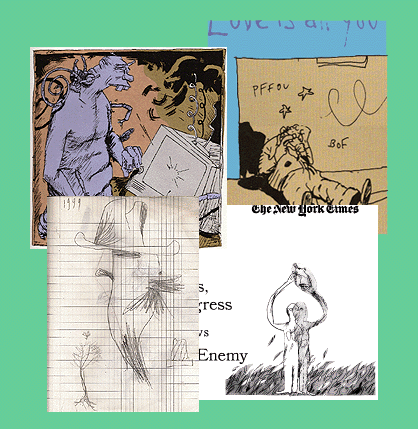 Love is all you
PFFOU
BOF
The New York Times
1999
s,
gress
ws
Enemy